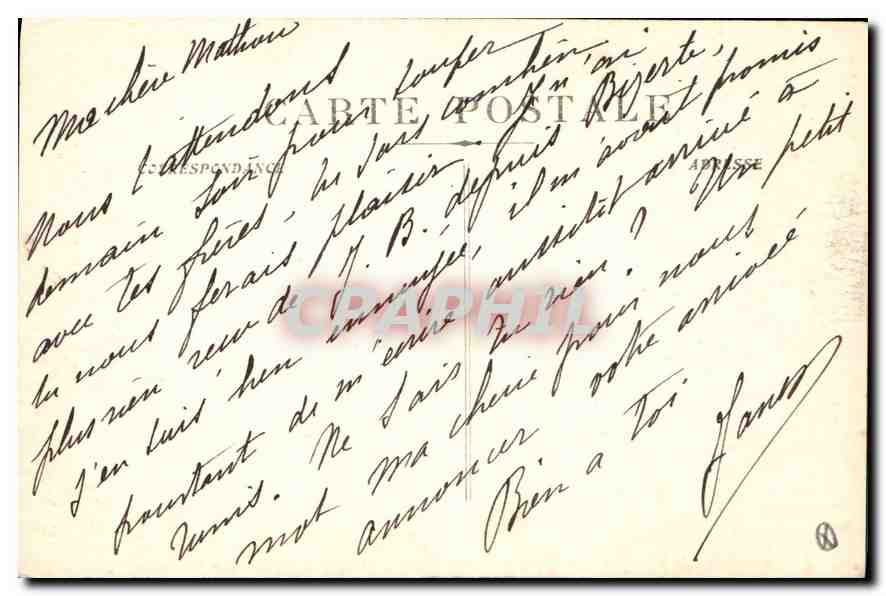 CARTE POSTALE
CORRESPONDANCE
ADRESSE
Ma chère Mathou
Nous t'attendons
demain soir pour souper
avec tes frères, tu sais combien
tu nous ferais plaisir. Je n'ai
plus rien reçu de J. B. depuis Bizerte,
j'en suis bien ennuyée, il m'avait promis
pourtant de m'écrire aussitôt arrivé à
Tunis. Ne sais tu rien ? Un petit
mot ma cherie pour nous
annoncer votre arrivée
Bien a toi
CPAPHIL